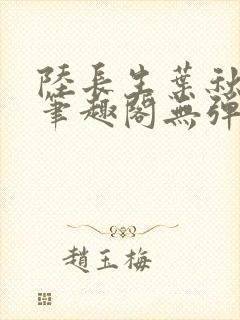 陸長生葉秋
筆趣閣無彈
趙玉梅